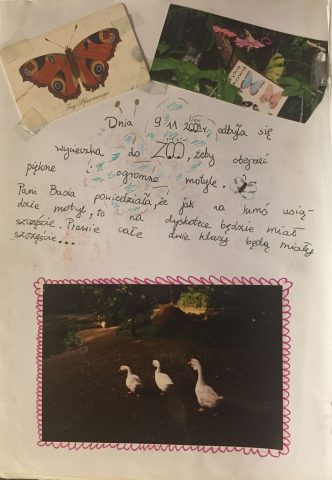 Dnia 9.11.2001r odbyła się
wycieczka do ZOO, żeby obejrzeć
piękne i ogromne motyle.
Pani Basia powiedziała, że jak na kimś usią-
dzie motyl, to na dyskotece będzie miał
szczęście. Prawie całe dwie klasy będą miały
szczęście...